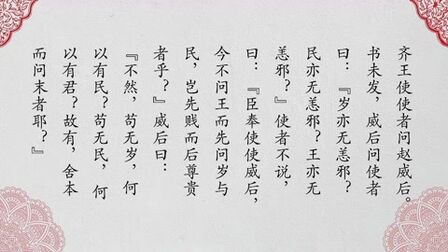 齐王使使者问赵威后。
书未发，威后问使者
曰：『岁亦无恙邪？
民亦无恙邪？王亦无
恙邪？』使者不说，
曰：『臣奉使使威后，
今不问王而先问岁与
民，岂先贱而后尊贵
者乎？』威后曰：
『不然，苟无岁，何
以有民？苟无民，何
以有君？故有，舍本
而问末者耶？』